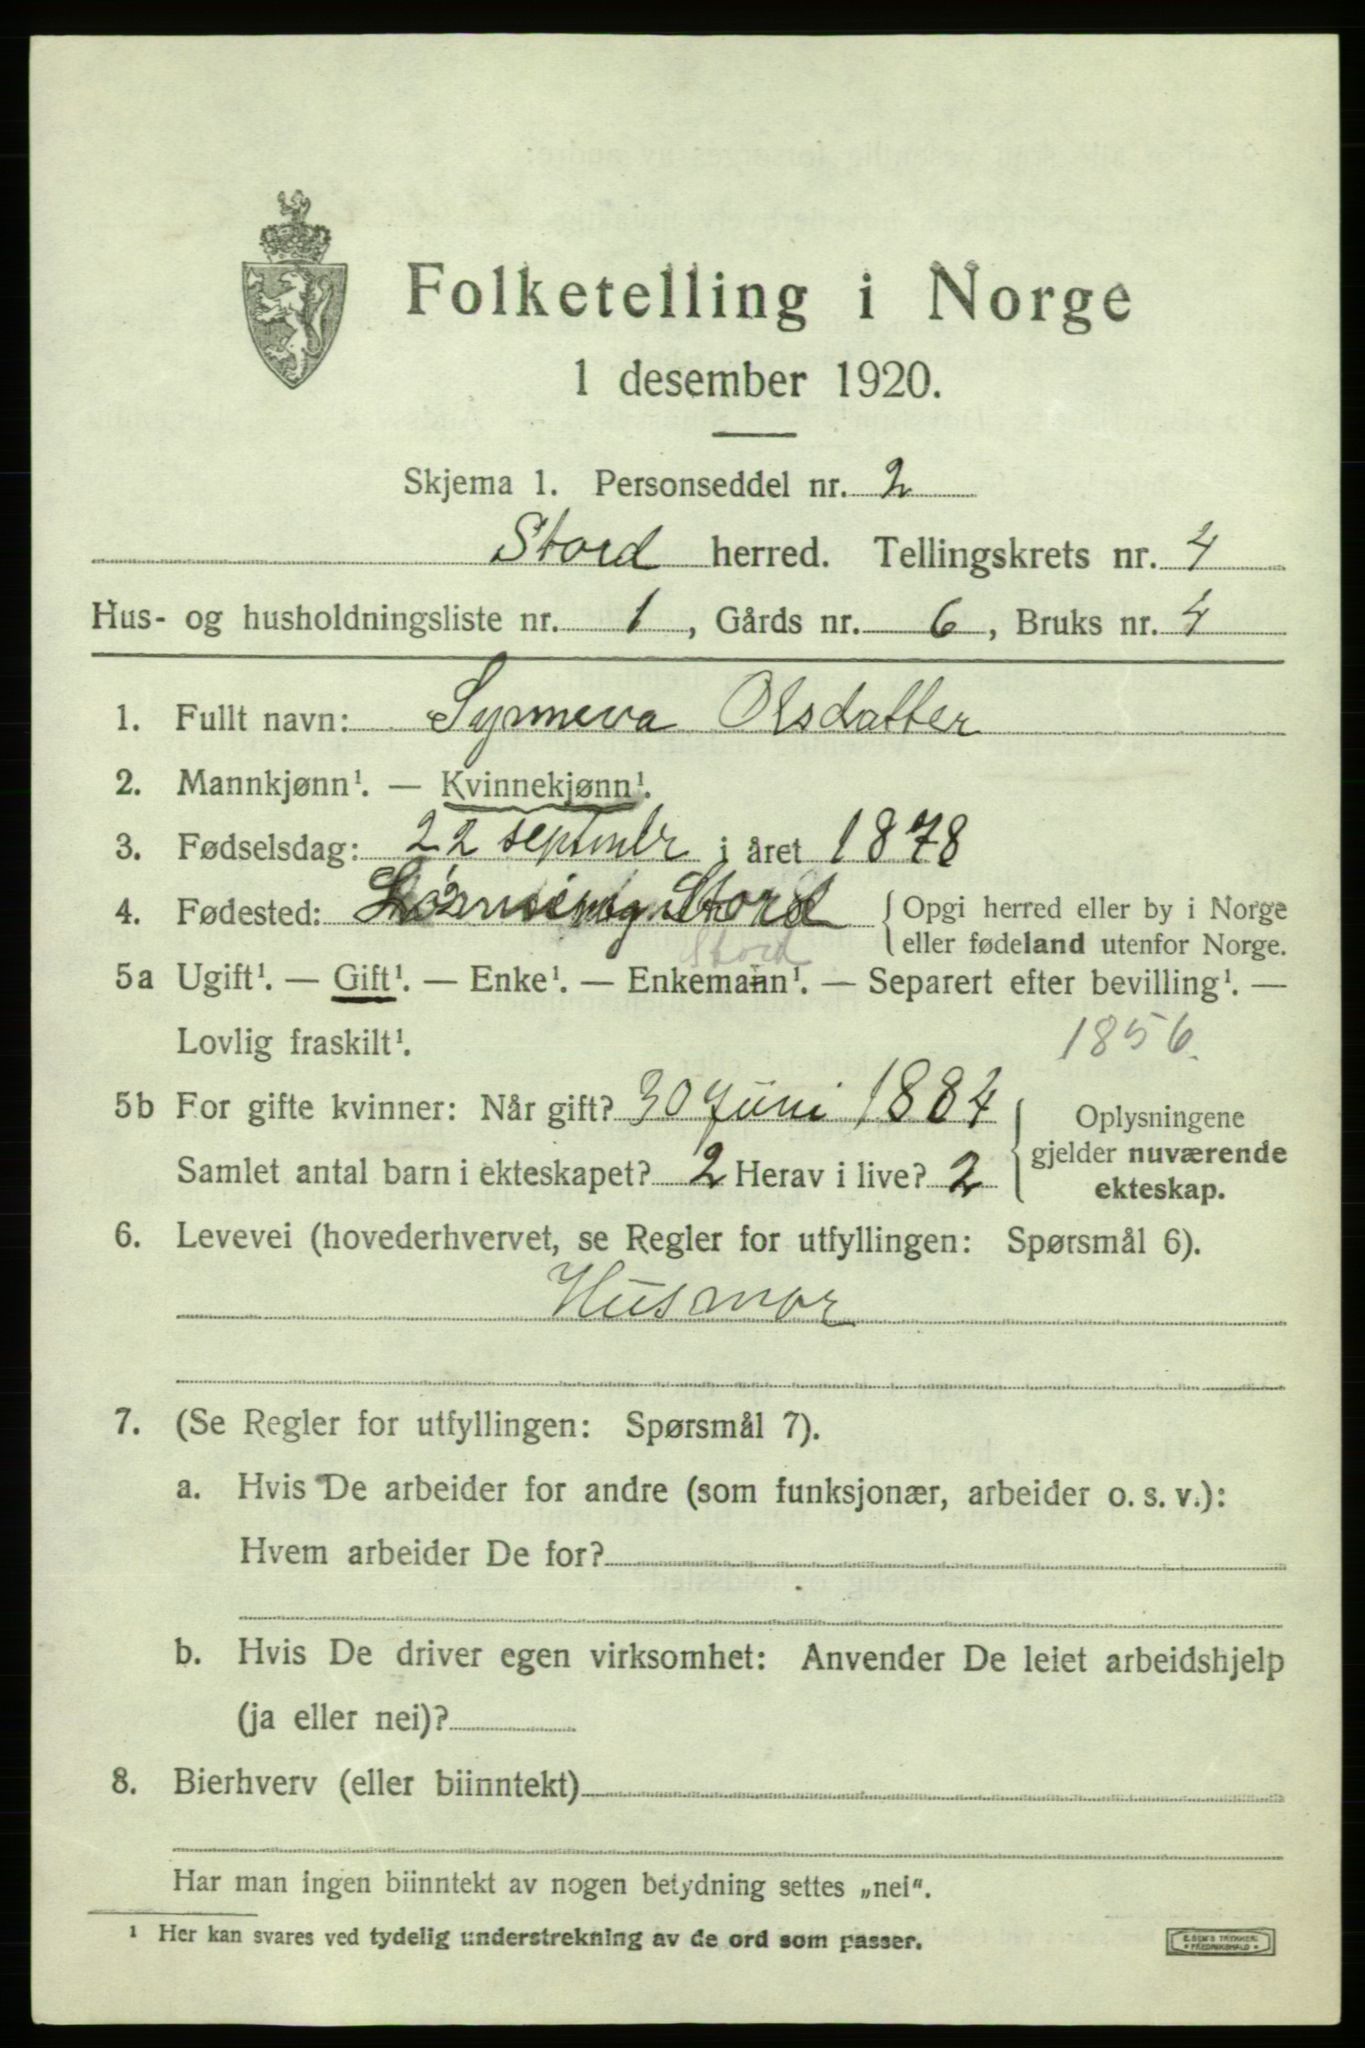 Folketelling i Norge
1 desember 1920.
Skjema 1. Personseddel nr. 2
Stord herred. Tellingskrets nr. 4
Hus- og husholdningsliste nr. 1, Gårds nr. 6, Bruks nr. 4
1. Fullt navn: Synneva Olsdatter
2. Mannkjønn¹. — Kvinnekjønn¹.
3. Fødselsdag: 22 septmbr i året 1878
4. Fødested: Stord { Opgi herred eller by i Norge
eller fødeland utenfor Norge.
Stord
5a Ugift¹. — Gift¹. — Enke¹. — Enkemann¹. — Separert efter bevilling¹. —
Lovlig fraskilt¹.
1856.
5b For gifte kvinner: Når gift? 30 Juni 1884 { Oplysningene
gjelder nuværende
Samlet antal barn i ekteskapet? 2 Herav i live? 2
ekteskap.
6. Levevei (hovederhvervet, se Regler for utfyllingen: Spørsmål 6).
Husmor
7. (Se Regler for utfyllingen: Spørsmål 7).
a. Hvis De arbeider for andre (som funksjonær, arbeider o. s. v.):
Hvem arbeider De for?
b. Hvis De driver egen virksomhet: Anvender De leiet arbeidshjelp
(ja eller nei)?
8. Bierhverv (eller biinntekt)
Har man ingen biinntekt av nogen betydning settes „nei“.
¹ Her kan svares ved tydelig understrekning av de ord som passer.